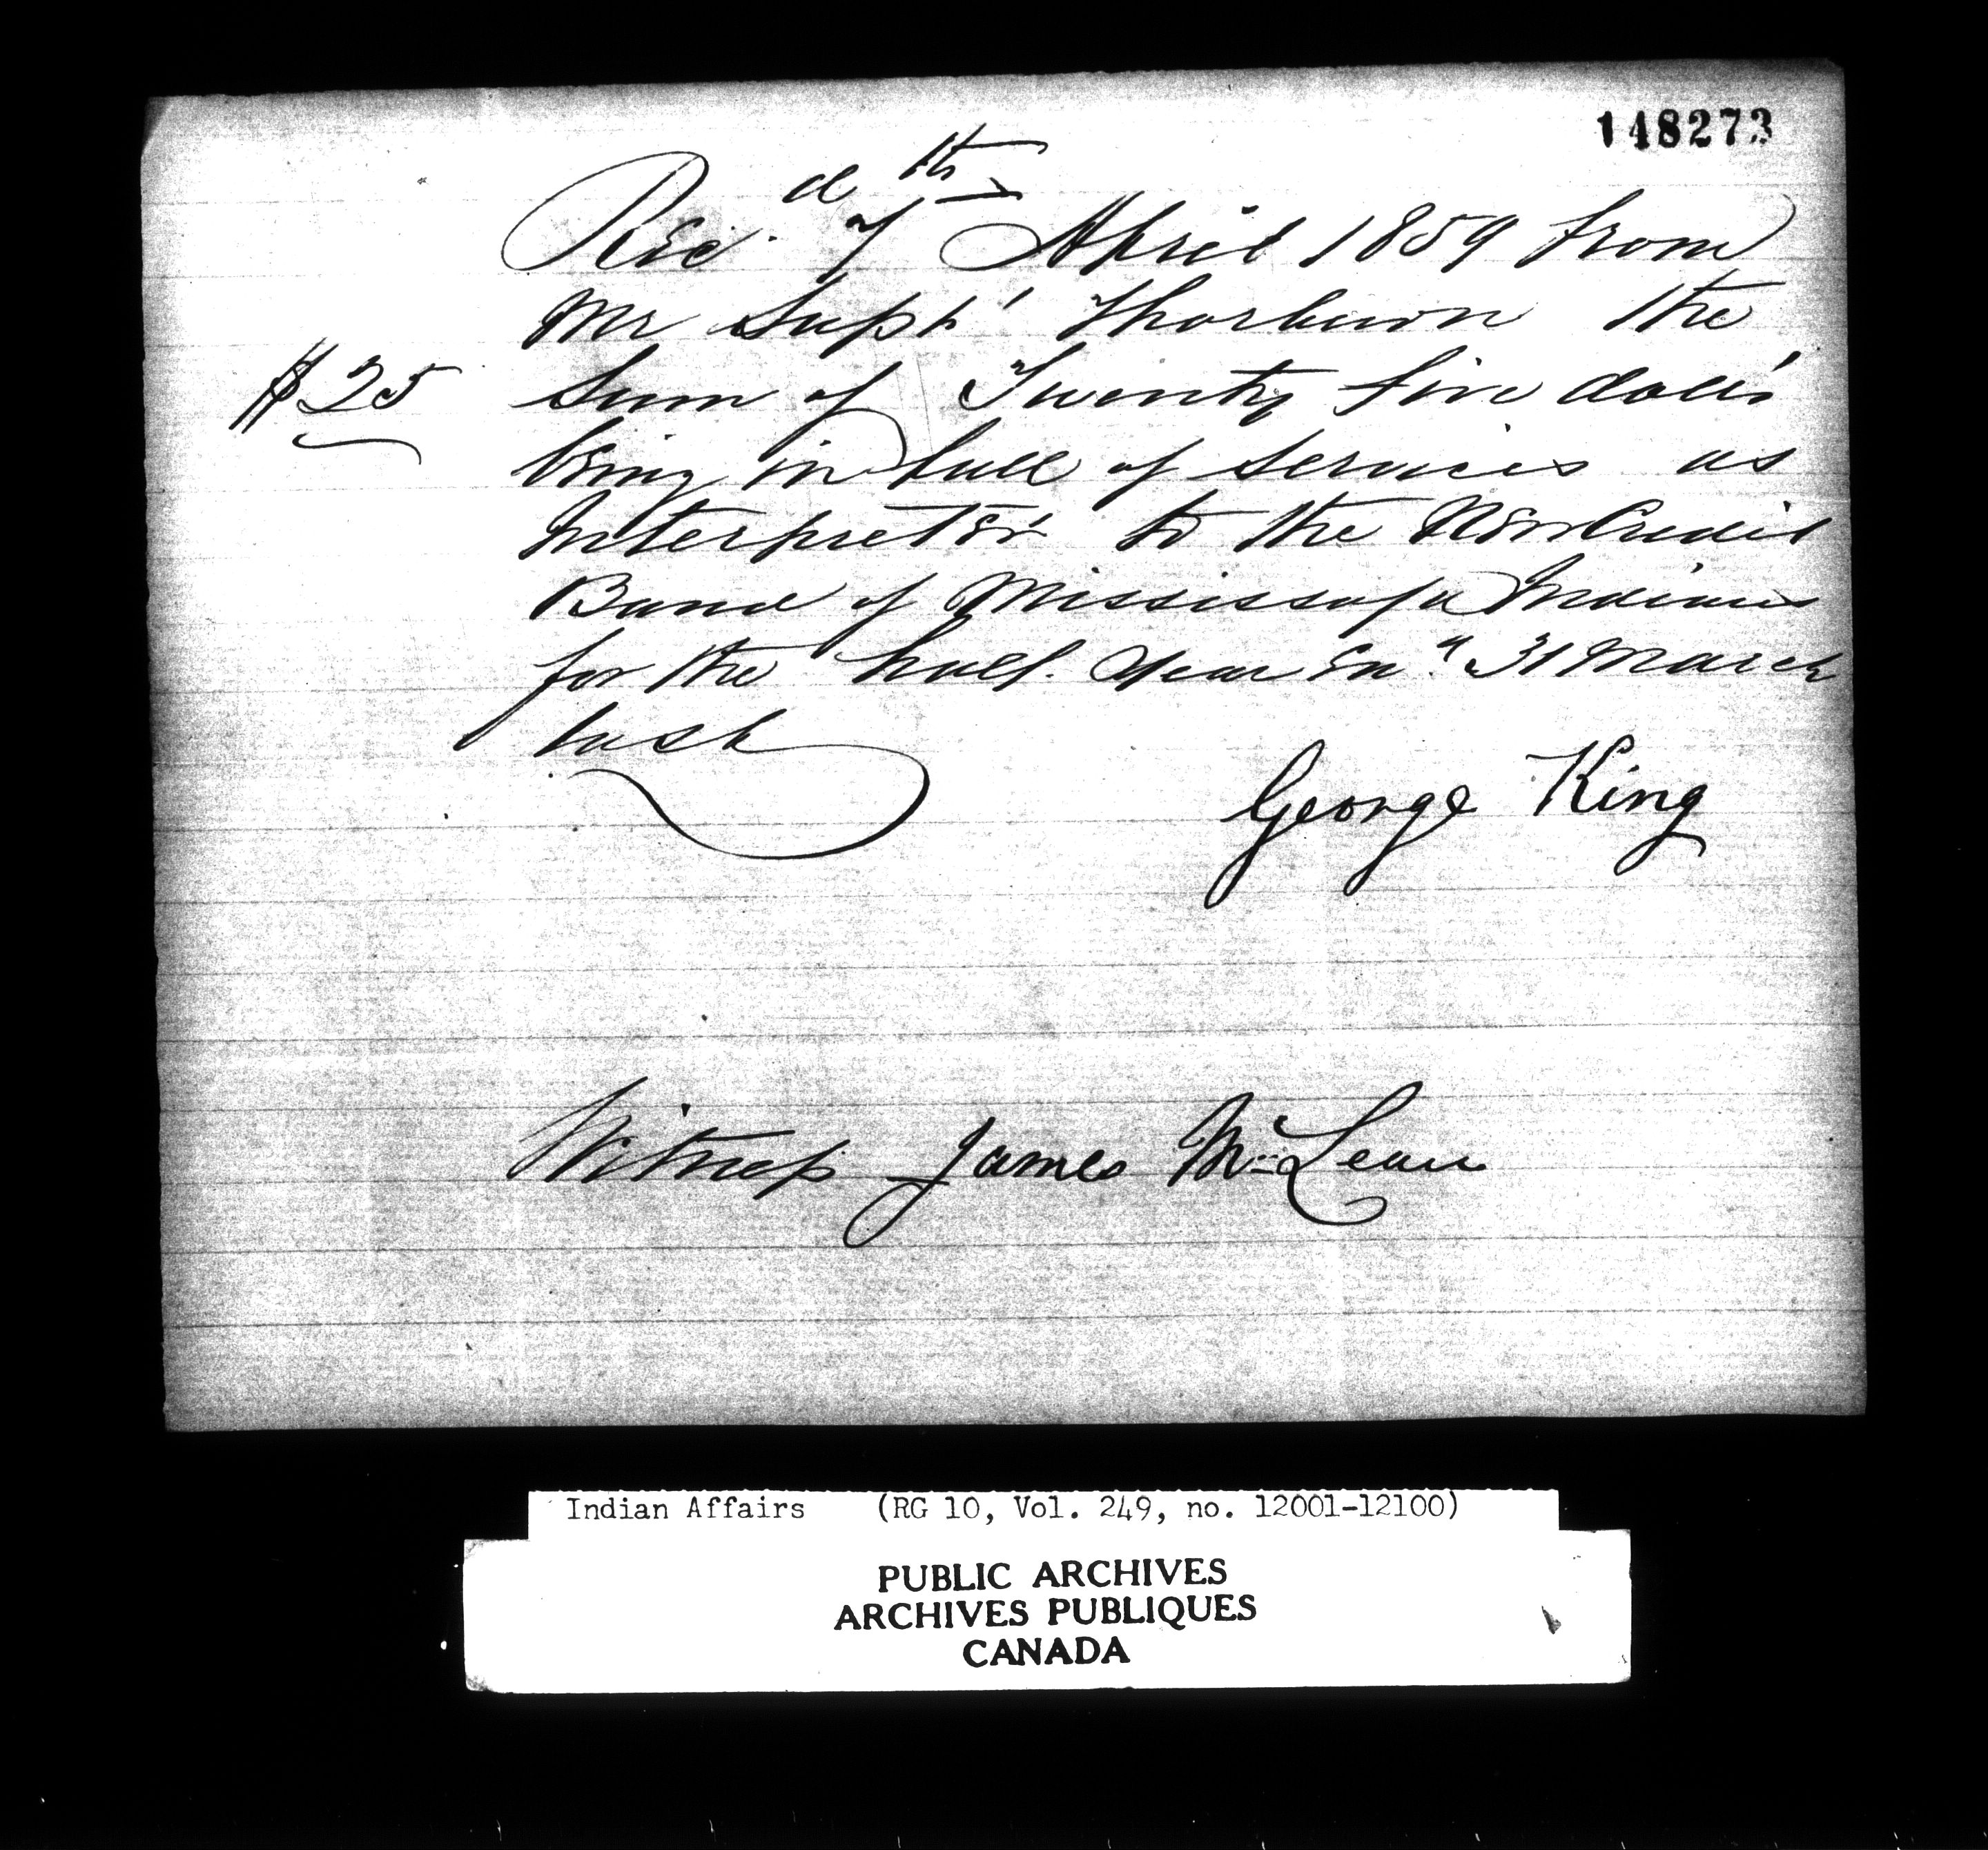 148273
Rec.d 7th April 1859 from
Mr Supt Thorburn the
$25 Sum of Twenty five doll's
being in full of services as
Interpreter to the New Credit
Band of Mississaga Indians
for the half. Year En.d 31 March
last
George King
Witness James McLean
Indian Affairs (RG 10, Vol. 249, no. 12001-12100)
PUBLIC ARCHIVES
ARCHIVES PUBLIQUES
CANADA